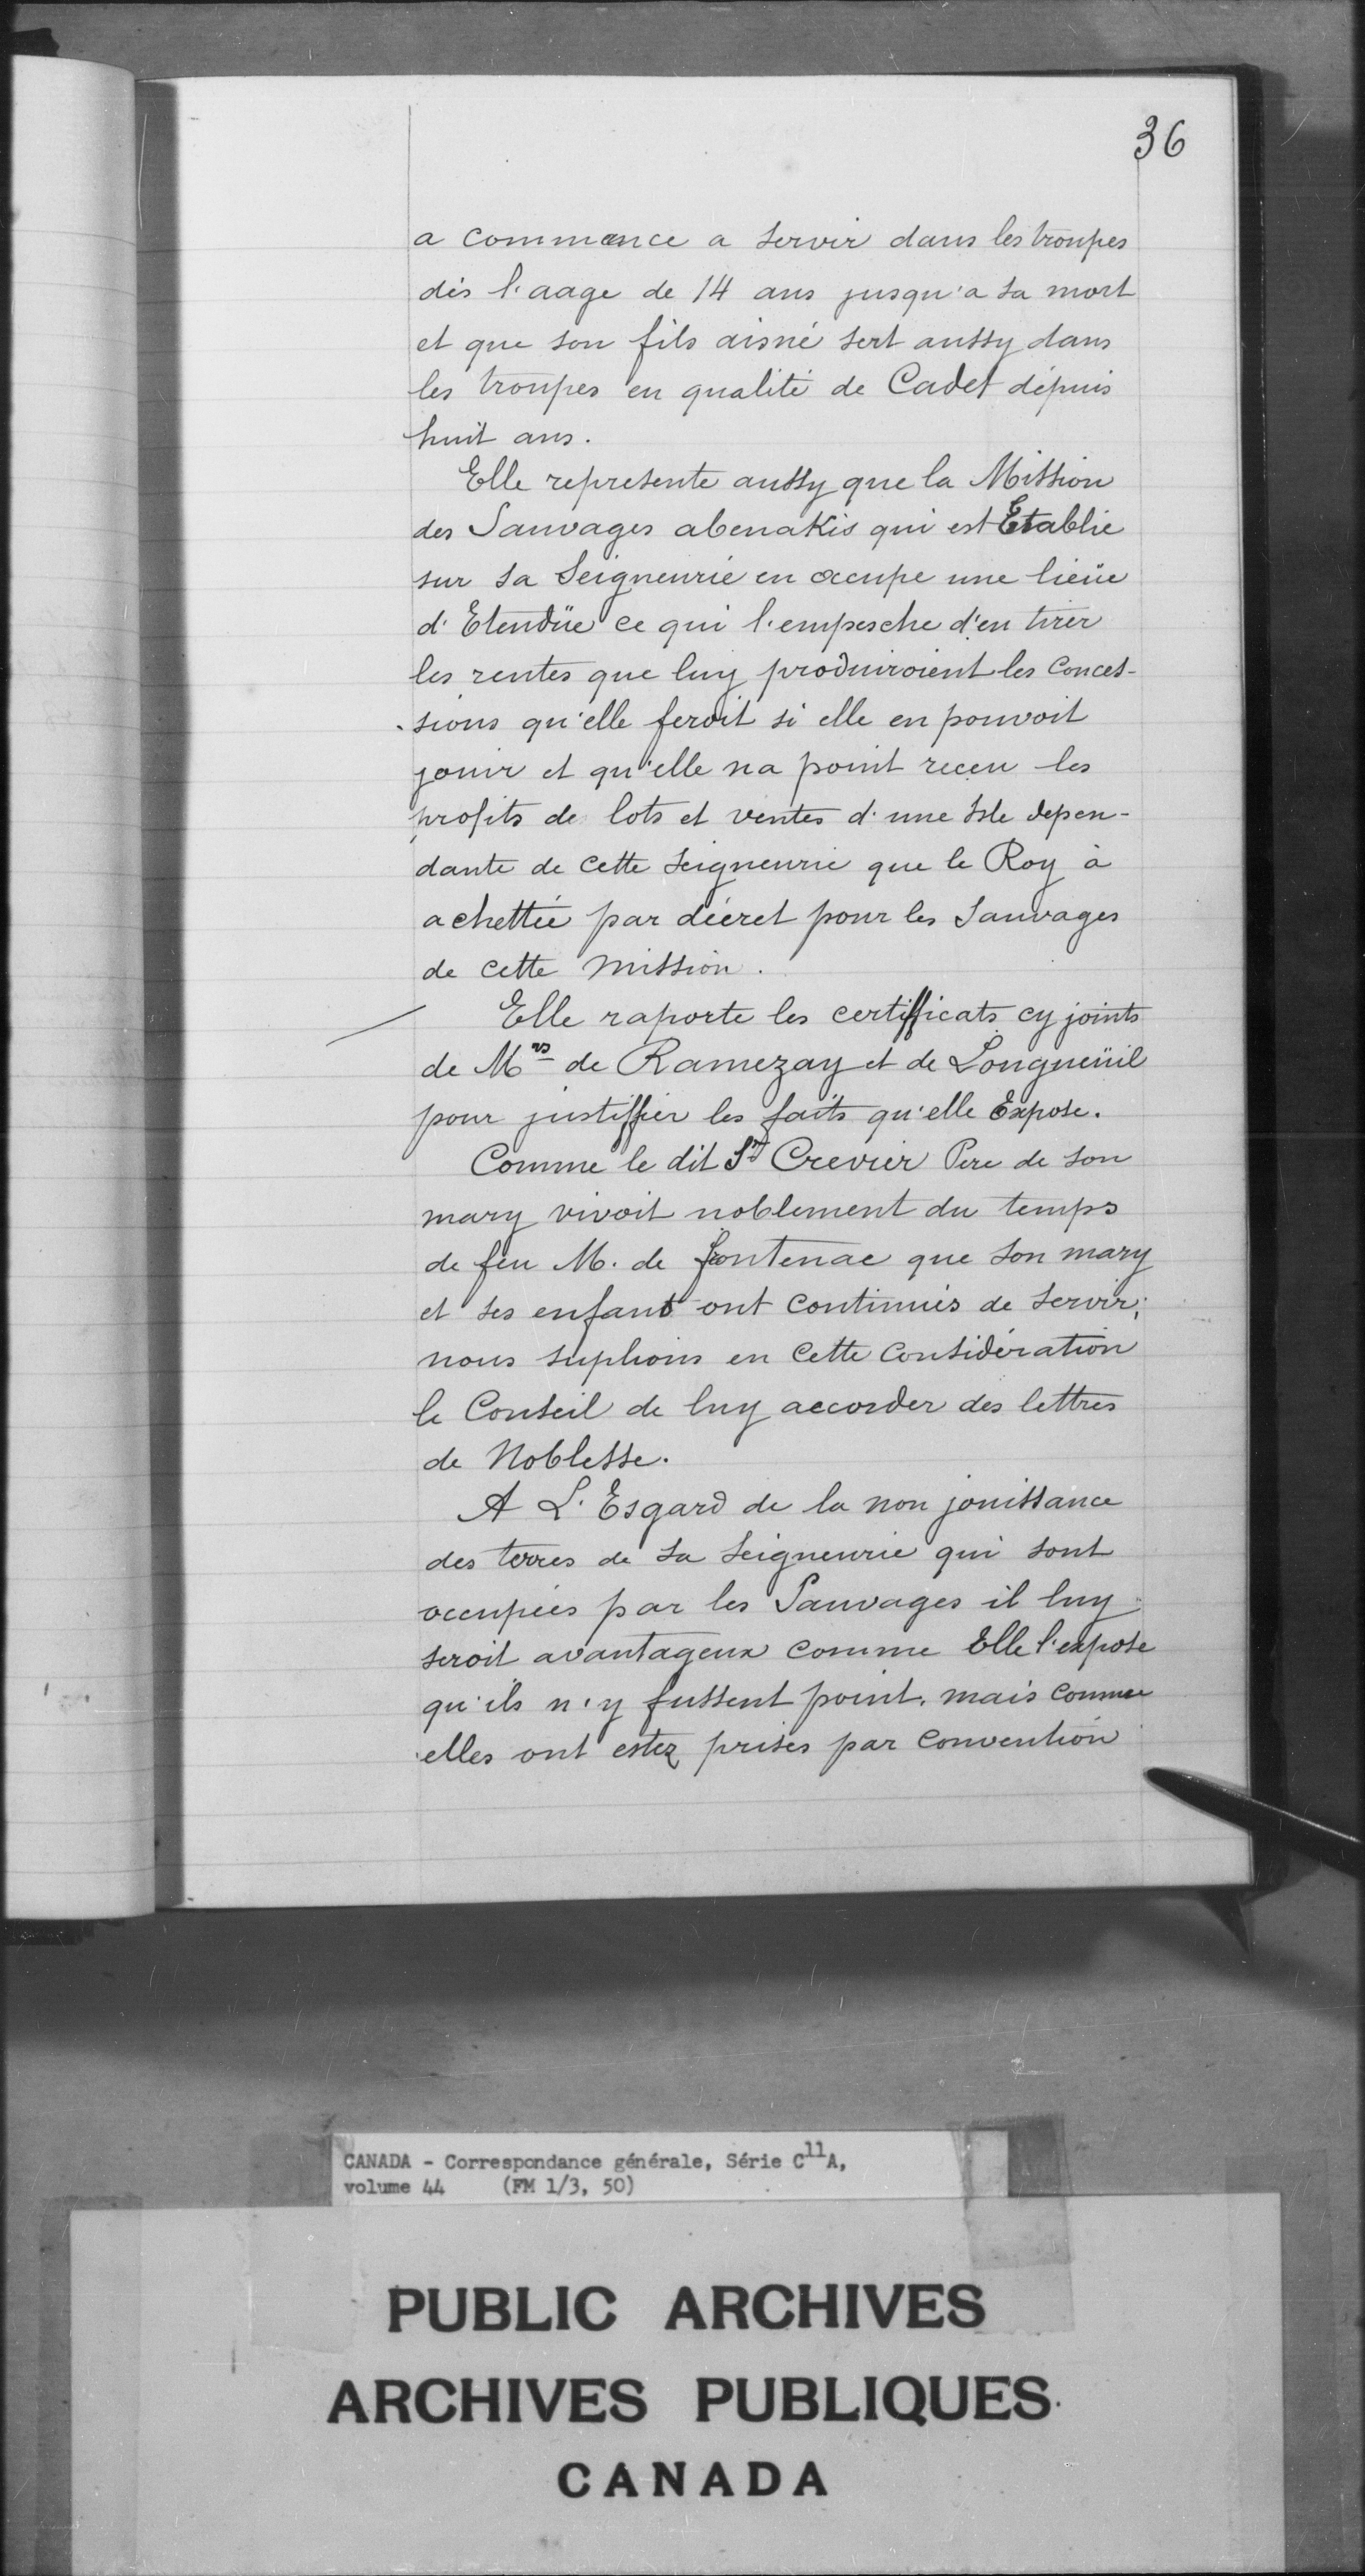 36
a commence a servir dans les troupes
dès l'aage de 14 ans jusqu'a sa mort
et que son fils aisné sert aussy dans
les troupes en qualité de Cadet dépuis
huit ans.
Elle represente aussy que la Mission
des Sauvages abenakis qui est Etablie
sur sa Seigneurie en occupe une lieüe
d'Etendüe ce qui l'empesche d'en tirer
les rentes que luy produiroient les Conces-
sions qu'elle feroit si elle en pouvoit
jouir et qu'elle na point reçeu les
profits de lots et ventes d'une Isle depen-
dante de cette seigneurie que le Roy à
achettée par décret pour les sauvages
de cette Mission.
Elle raporte les certifficats cy joints
de Mrs de Ramezay et de Longueüil
pour justiffier les faits qu'elle Expose.
Comme le dit Sr Crevier Pere de son
mary vivoit noblement du temps
de feu M. de frontenac que son mary
et ses enfans ont continués de servir;
nous suplions en cette considération
le Conseil de luy accorder des lettres
de Noblesse.
A L'Esgard de la non jouissance
des terres de sa seigneurie qui sont
occupées par les Sauvages il luy
seroit avantageux comme Elle l'expose
qu'ils n'y fussent point, mais comme
elles ont estez prises par convention
CANADA - Correspondance générale, Série C11A,
volume 44 (FM 1/3, 50)
PUBLIC ARCHIVES
ARCHIVES PUBLIQUES
CANADA